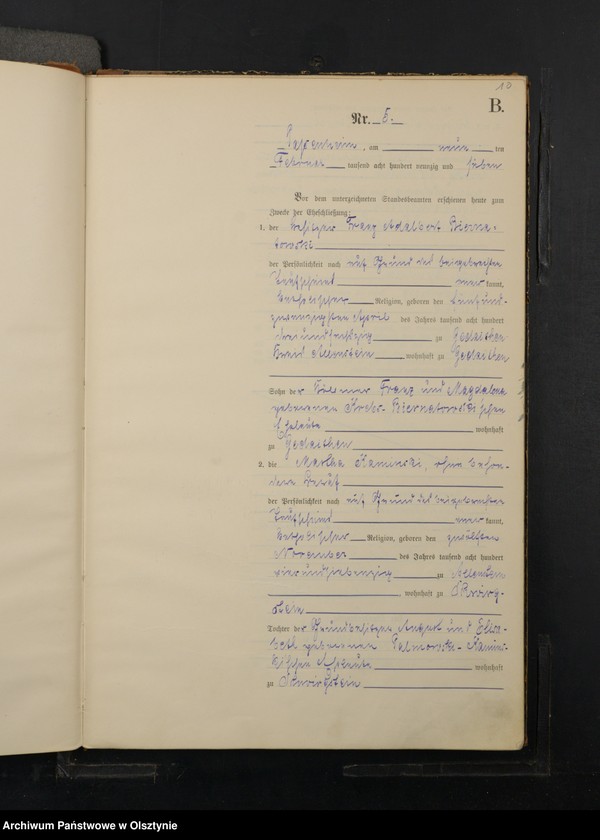 10
B.
Nr. 5.
am neun ten
Februar tausend acht hundert neunzig und sieben
Vor dem unterzeichneten Standesbeamten erschienen heute zum
Zwecke der Eheschließung:
1. der Besitzer Franz Adalbert Bierna-
towski
der Persönlichkeit nach auf Grund des beigebrachten
Taufscheins aner kannt,
katholischer Religion, geboren den fünfund-
zwanzigsten April des Jahres tausend acht hundert
dreiundsechzig zu Gedaithen
Kreis Allenstein wohnhaft zu Gedaithen
Sohn der Franz und Magdalena
geborenen Biernatowskischen
Eheleute wohnhaft
zu Gedaithen
2. die Martha Kaminski, ohne beson-
deren Beruf
der Persönlichkeit nach auf Grund des beigebrachten
Taufscheins aner kannt,
katholischer Religion, geboren den zwölften
November des Jahres tausend acht hundert
vierundsiebenzig zu Allenstein
wohnhaft zu Schwirg-
stein
Tochter der Grundbesitzer August und Elisa-
beth geborenen Palmowski-Kamins-
kischen Eheleute wohnhaft
zu Schwirgstein
Archiwum Państwowe w Olsztynie